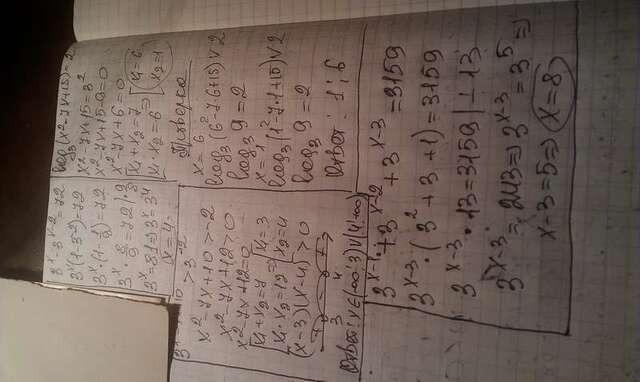 3ˣ-3ˣ⁻²=72
3ˣ(1-3⁻²)=72
3ˣ·(1-1/9)=72
3ˣ·8/9=72|·9/8
3ˣ=81⇒3ˣ=3⁴
x=4
log₃(x²-7x+15)=2
x²-7x+15=3²
x²-7x+15-9=0
x²-7x+6=0
[x₁+x₂=7 ⇒ [x₁=6
[x₁·x₂=6 [x₂=1
Проверка
x=6
log₃(6²-7·6+15)∨2
log₃9=2
x=1
log₃(1²-7·1+15)∨2
log₃9=2
Ответ: 1; 6
>3⁻²
x²-7x+10>-2
x²-7x+12>0
x²-7x+12=0
[x₁+x₂=7 ⇒ [x₁=3
[x₁·x₂=12 [x₂=4
(x-3)(x-4)>0
3 4
Ответ: x∈(-∞;3)∪(4;+∞)
3ˣ⁻¹+3ˣ⁻²+3ˣ⁻³=3159
3ˣ⁻³·(3²+3+1)=3159
3ˣ⁻³·13=3159|:13
3ˣ⁻³=243⇒3ˣ⁻³=3⁵⇒
x-3=5⇒x=8